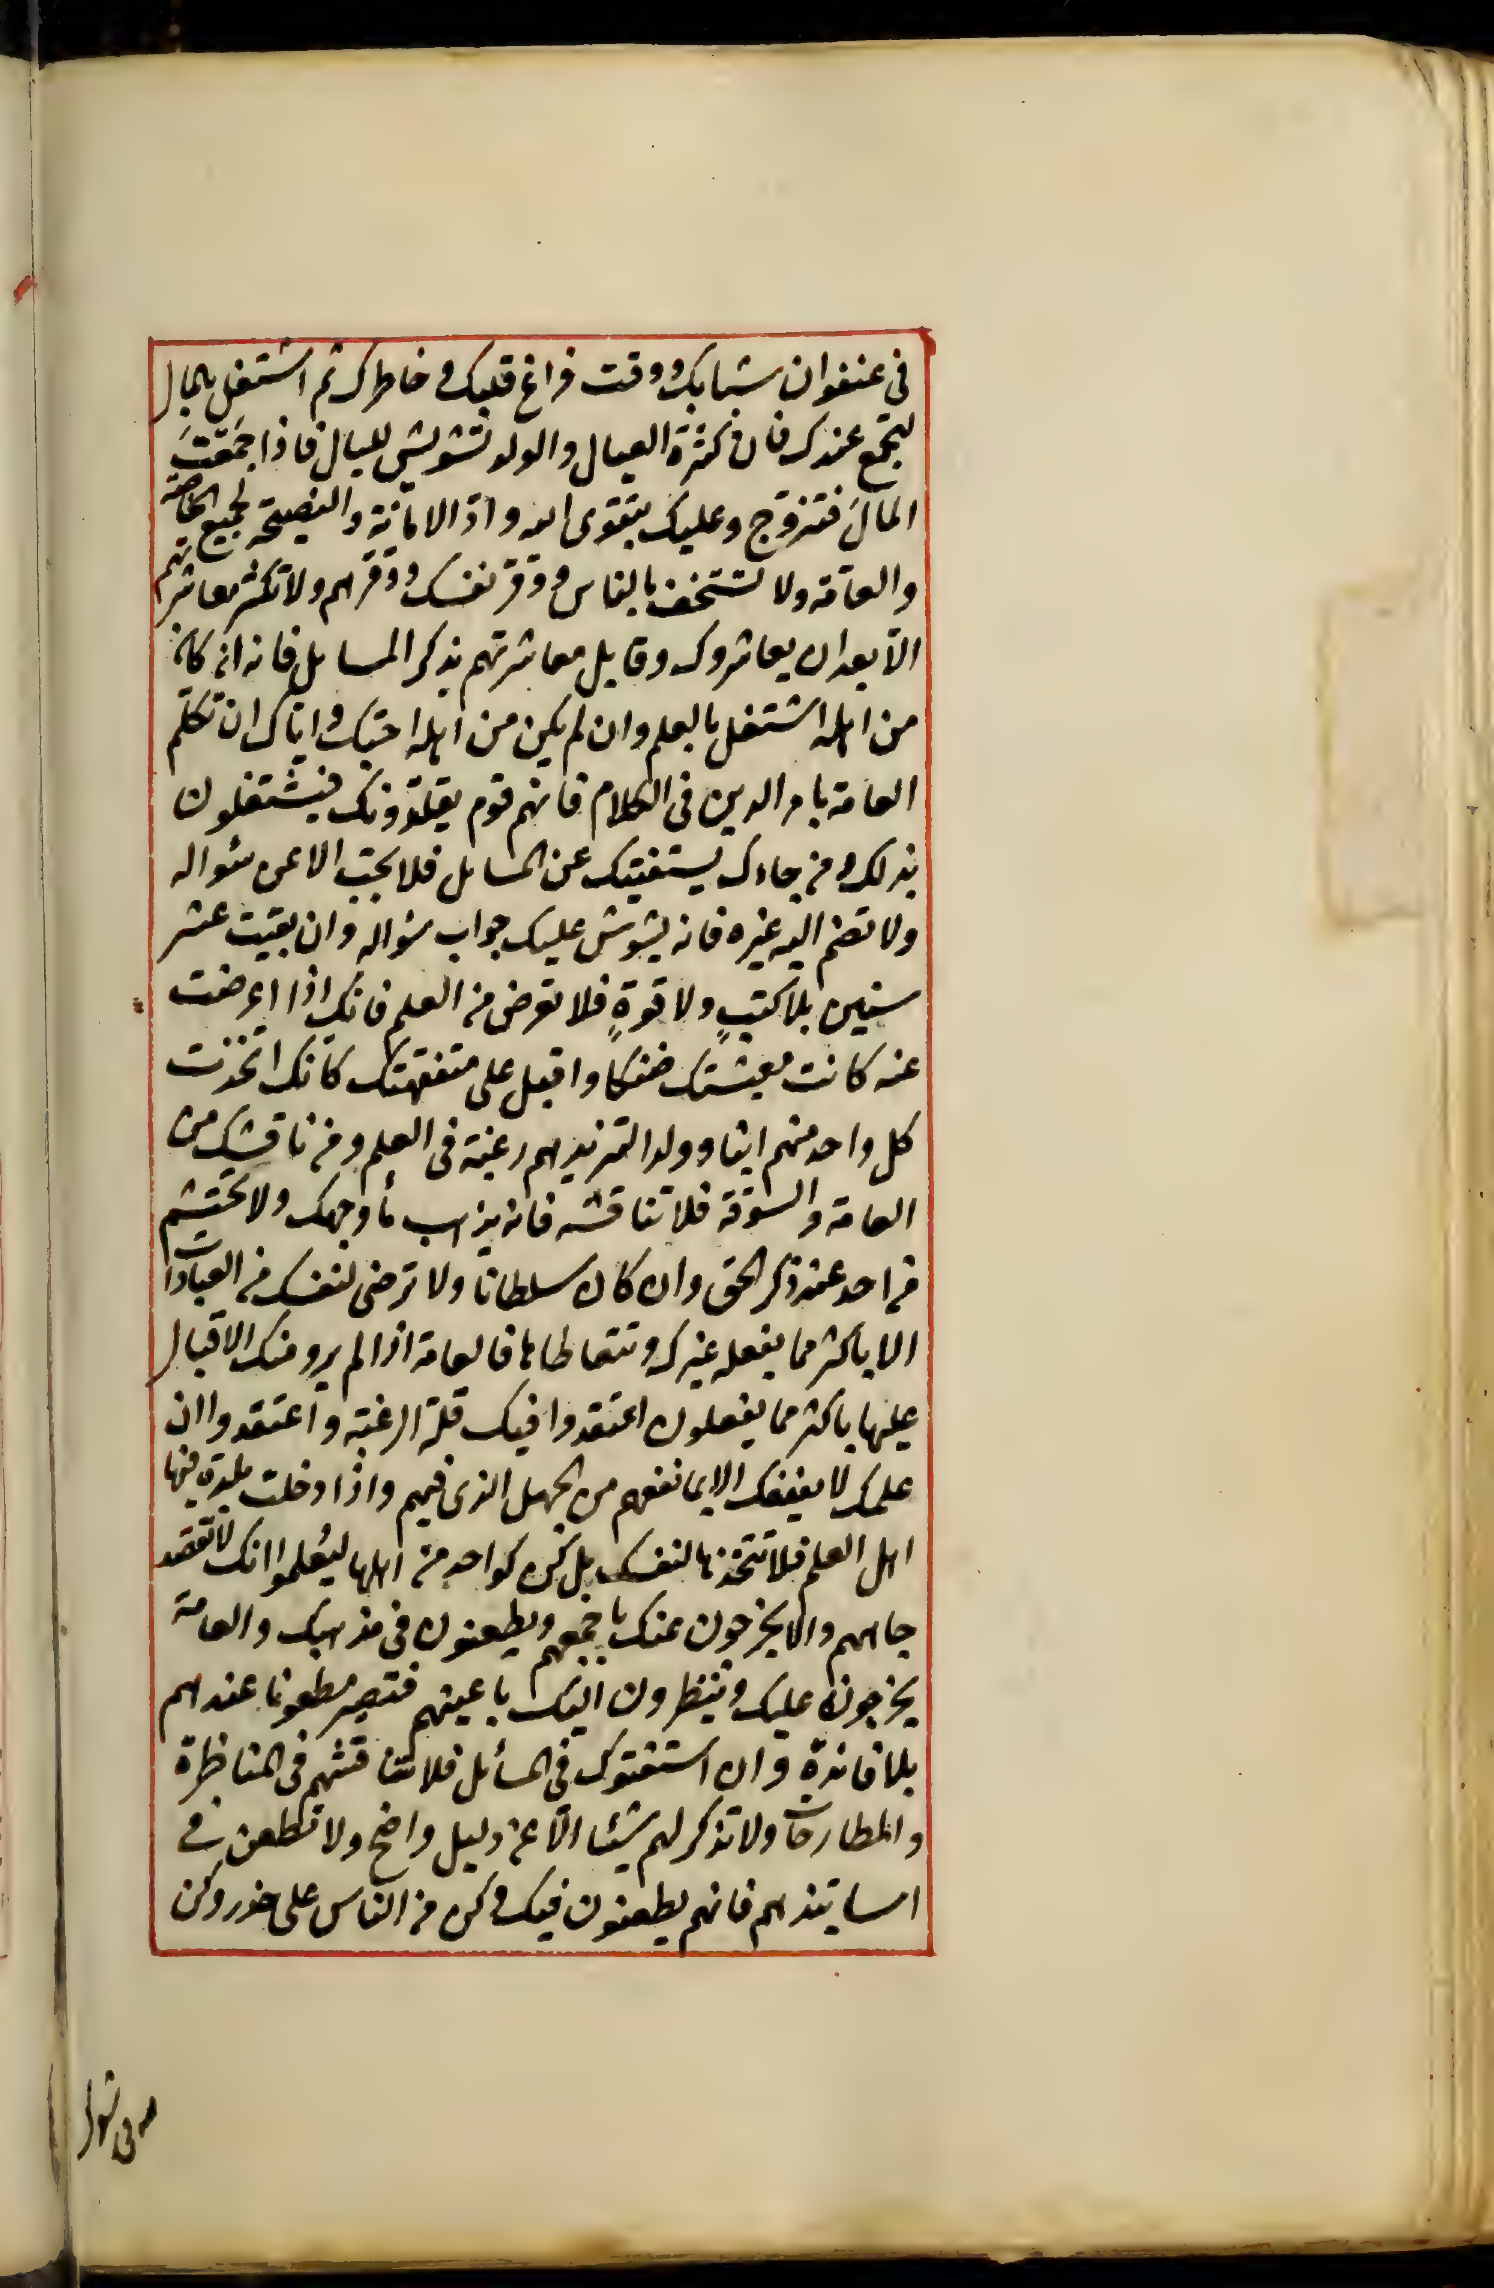 فى عنفوان شبابك ووقت فراغ قلبك وخاطرك ثم اشتغل بالمال
ليجتمع عندك فان فى كثرة العيال والولد تشويش للبال فاذا جمَعتَ
المالَ فتزوّج وعليك بتقوى الله واَدّ الامانة والنصيحة لجميع الخاصّة
والعامّة ولا تستخف بالناس ووقّر نفسك ووقّرهم ولا تكثر معاشرتهم
الّا بعد ان يعاشروك وقابل معاشرتهم بذكر المسايل فانه ان كان
من اهله اشتغل بالعلم وان لم يكن من اهله احبّك وايّاك ان تكلّم
العامة بامر الدين فى الكلام فانهم قوم يقلّدونك فيشتغلون
بذلك ومن جاءك يستفتيك عن المسايل فلا تجب الا عن سُواله
ولا تضم اليه غيره فانه يشوش عليك جواب سُواله وان بقيت عشر
سنين بلا كتبٍ ولا قوةٍ فلا تعرض من العلم فانك اذا اعرضت
عنه كانت معيشتك ضنكا واقبل على متفقهتك كانك اتخذت
كل واحد منهم ابنا وولدا لتزيدهم رغبة فى العلم ومن ناقشك من
العامة والسّوقة فلا تناقشه فانه يذهب ماء وجهك ولا تحتشم
من احد عند ذكر الحق وان كان سلطانا ولا ترضى لنفسك من العبادات
الا باكثر مما يفعله غيرك وتتعاطاها فالعامة اذا لم يرو منك الاقبال
عليها باكثر مما يفعلون اعتقدوا فيك قلة الرغبة واعتقدوا ان
علمك لا ينفعك الا ما نفعهم من الجهل الذى فيهم واذا دخلت بلدة فيها
اهل العلم فلا تتخذها لنفسك بل كن كواحد من اهلها ليعلموا انك لا تقصد
جاههم والا يخرجون عنك باجمعهم ويطعنون فى مذهبك والعامة
يخرجون عليك وينظرون اليك باعينهم فتصير مطعونا عندهم
بلا فائدة وان استفتوك فى المسائل فلا تناقشهم فى المناظرة
والمطارحات ولا تذكر لهم شيئا الّا عن دليل واضح ولا تطعن فى
اساتيذهم فانهم يطعنون فيك وكن من الناس على حذر وكن